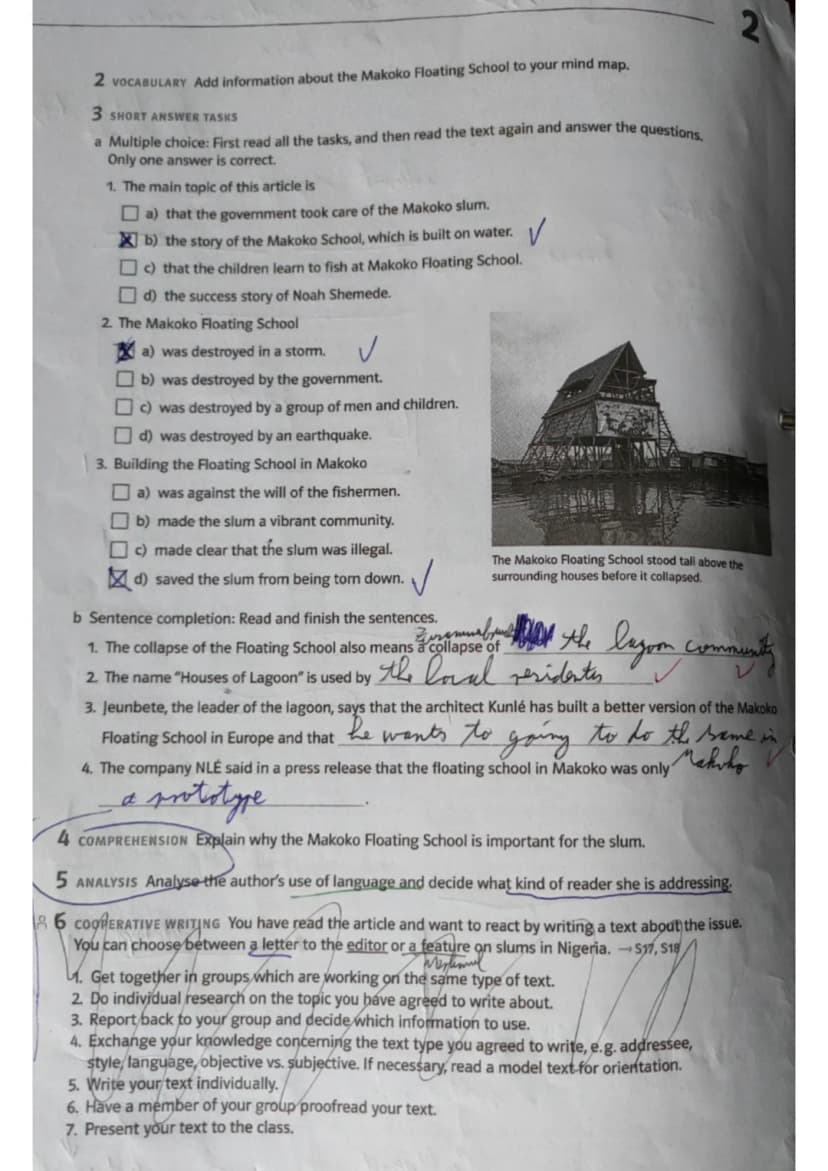 2
2 VOCABULARY Add information about the Makoko Floating School to your mind map.
3 SHORT ANSWER TASKS
a Multiple choice: First read all the tasks, and then read the text again and answer the questions.
Only one answer is correct.
1. The main topic of this article is
a) that the government took care of the Makoko slum.
b) the story of the Makoko School, which is built on water.
c) that the children learn to fish at Makoko Floating School.
d) the success story of Noah Shemede.
2. The Makoko Floating School
a) was destroyed in a storm.
b) was destroyed by the government.
c) was destroyed by a group of men and children.
d) was destroyed by an earthquake.
3. Building the Floating School in Makoko
a) was against the will of the fishermen.
b) made the slum a vibrant community.
c) made clear that the slum was illegal.
d) saved the slum from being torn down.
The Makoko Floating School stood tall above the
surrounding houses before it collapsed.
b Sentence completion: Read and finish the sentences.
1. The collapse of the Floating School also means a collapse of the lagoon community
2. The name "Houses of Lagoon" is used by the local residentes
3. Jeunbete, the leader of the lagoon, says that the architect Kunlé has built a better version of the Makoko
Floating School in Europe and that he wants to going to do the same in
Makoko
4. The company NLÉ said in a press release that the floating school in Makoko was only
a prototype.
4 COMPREHENSION Explain why the Makoko Floating School is important for the slum.
5 ANALYSIS Analyse the author's use of language and decide what kind of reader she is addressing.
6 COOPERATIVE WRITING You have read the article and want to react by writing a text about the issue.
You can choose between a letter to the editor or a feature on slums in Nigeria. → S17, S18
1. Get together in groups which are working on the same type of text.
2. Do individual research on the topic you have agreed to write about.
3. Report back to your group and decide which information to use.
4. Exchange your knowledge concerning the text type you agreed to write, e.g. addressee,
style, language, objective vs. subjective. If necessary, read a model text for orientation.
5. Write your text individually.
6. Have a member of your group proofread your text.
7. Present your text to the class.